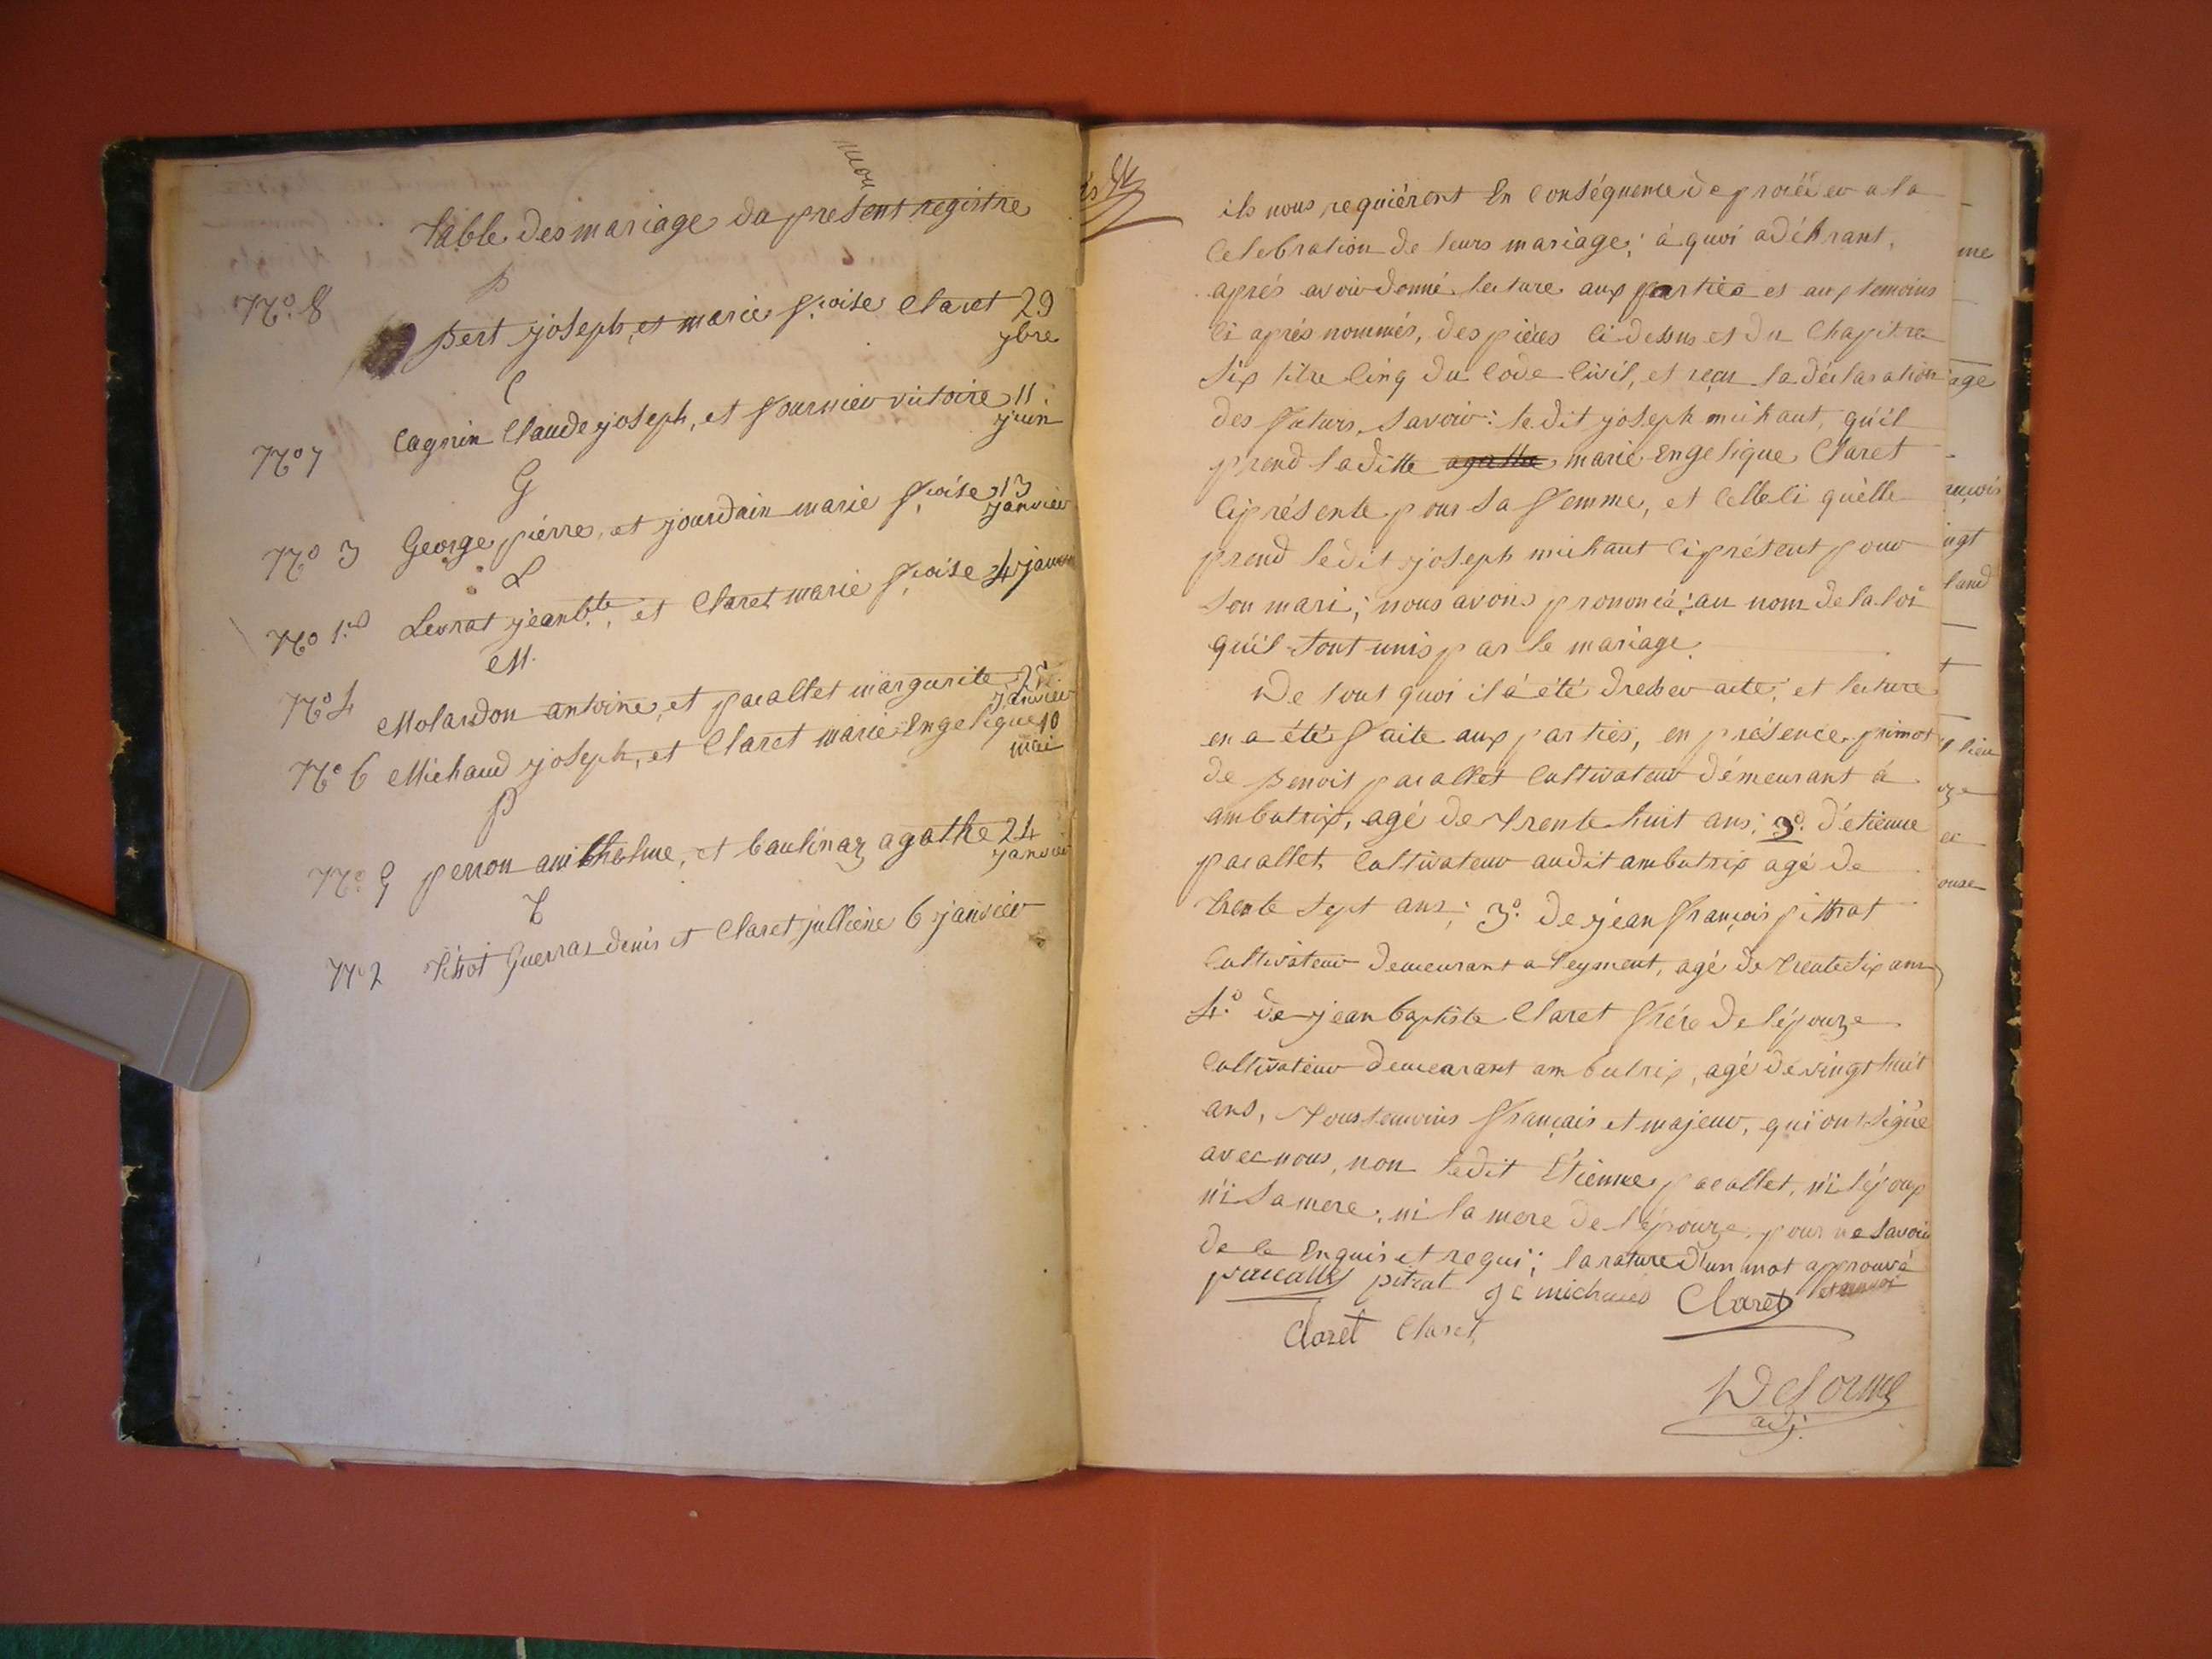 Table des mariage du present registre
B
N.o 8 Bert joseph, et marie f.coise Claret 29
9bre
C
N.o 7 Cagnin Claude joseph, et fournier victoire 11
juin
G
N.o 3 George pièrre, et jourdain marie f.coise 13
janvier
L
N.o 1.er Levrat jean b.te, et Claret marie f.coise 4 janvier
M.
N.o 4 Molardon antoine, et pacallet margurite
janvier
N.o 6 Michaud joseph, et Claret marie Engelique 10
mai
P
N.o 5 perron anthelme, et baulinaz agathe 24
janvier
T
N.o 2 Tissot Guerraz denis et Claret julliène 6 janvier
ils nous requièrent En Conséquence de procéder a la
Celebration de leurs mariage; à quoi adéhrant,
aprés avoir donné lecture aux parties et aux temoins
Ci aprés nommés, des pièces Ci dessus et du Chapitre
Six titre Cinq du Code Civil, et reçu la déclaration
des futurs, Savoir: le dit joseph michaut, qu'il
prend la ditte agathe marie Engelique Claret
Ci présente pour Sa femme, et Celle Ci quèlle
prend ledit joseph michaut Ci présent pour
Son mari; nous avons prononcé; au nom de la loi
qu'il Sont unis par le mariage.
De tout quoi il á été dresser acte; et lecture
en a été faite aux parties, en présence, primot
de Benoit pacallet Cultivateur démeurant à
ambutrix, agé de trente huit ans; 2.o d'étienne
pacallet Cultivateur audit ambutrix agé de
trente Sept ans; 3.o de jean françois pittrat
Cultivateur demeurant a leyment, agé de trente Six ans
4.o de jean baptiste Claret frère de l'épouze
Cultivateur demeurant ambutrix, agé de vingt huit
ans, tous temoins français et majeur, qui ont Signé
avec nous, non ledit Étienne pacallet, n'i l'époux
n'i Sa mere; ni la mere de l'épouze, pour ne Savoir
de ce Enquis et requi; la rature d'un mot approuvé
pacallet pitrat j c michaud Claret
Claret Claret
Delorme
adj.